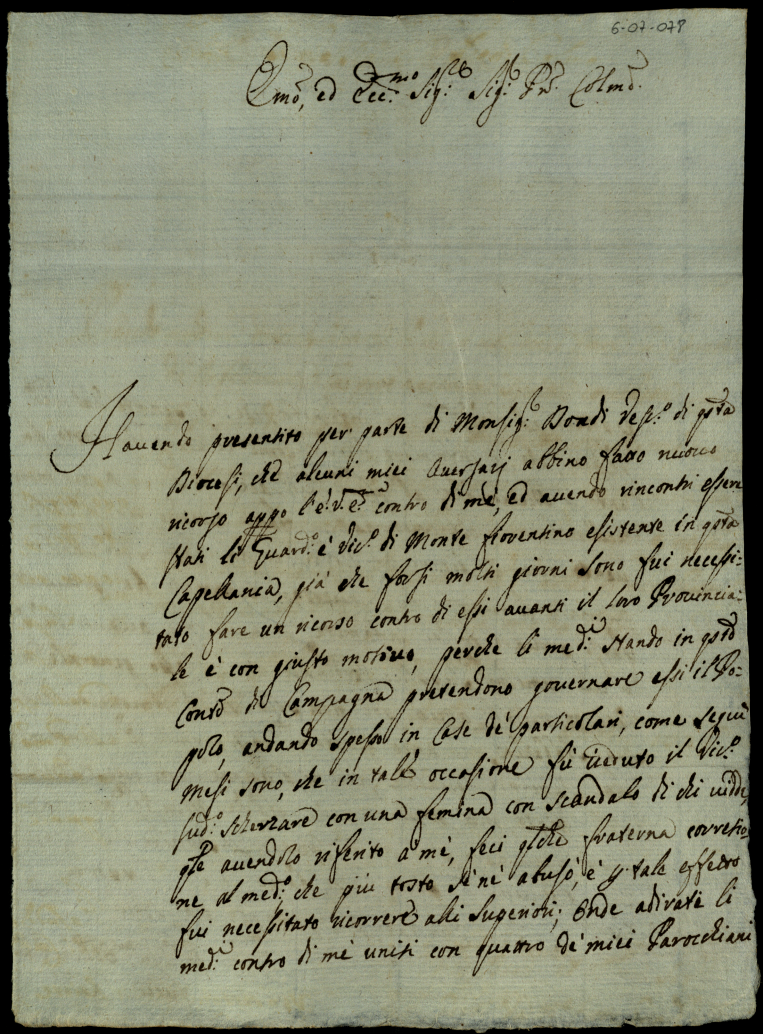 6-07-078
Emo, ed Ecc.mo Sig.re Sig.re Pne. Colmo.
Havendo presentito per parte di Monsig.r Bondi Vesc.o di qsta
Diocesi, che alcuni miei Aversarj abbino fatto nuovo
ricorso appo l'e.v.e. contro di mè, ed avendo rincontri essere
stati li Guard.o è Vic.o di Monte fiorentino esistente in qsta
Capellania, già che forsi molti giorni sono fui necessi:
tato fare un ricorso contro di essi avanti il loro Provincia:
le è con giusto motivo, perche li med.i stando in qsto
Conto di Campagna pretendono governare essi il Po:
polo, andando spesso in Case de particolari, come seguì
Mesi sono, che in tall'occasione fù veduto il Vic.o
sud.o scherzare con una femina con scandalo di chi vidde,
qle avendolo riferito a mè, feci qche fraterna corretio:
ne al med.o che più tosto se nè abusò, è p tale effetto
fui necessitato ricorrere alli Superiori; Onde adirati li
med.i contro di mè uniti con quattro de miei Parocchiani